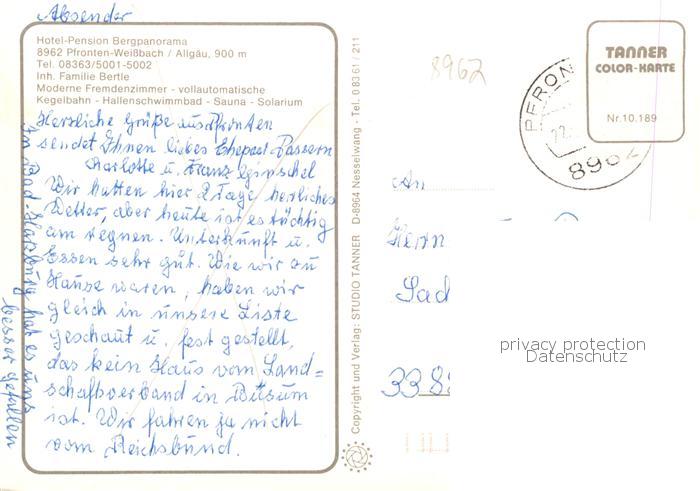 Absender
Hotel-Pension Bergpanorama
8962 Pfronten-Weißbach / Allgäu, 900 m
Tel. 08363/5001-5002
Inh. Familie Bertle
Moderne Fremdenzimmer - vollautomatische
Kegelbahn - Hallenschwimmbad - Sauna - Solarium
Herzliche Grüße aus Pfronten
sendet Ihnen liebes Ehepaar
Charlotte u. Franz
Wir hatten hier 2 Tage herrliches
Wetter, aber heute ist es tüchtig
am regnen. Unterkunft u.
Essen sehr gut. Wie wir zu
Hause waren, haben wir
gleich in unsere Liste
geschaut u. fest gestellt,
das kein Haus vom Land=
schaftsverband in Büsum
ist. Wir fahren ja nicht
vom Reichsbund.
In Bad-Harzburg hat es uns
besser gefallen
Copyright und Verlag: STUDIO TANNER D-8964 Nesselwang - Tel. 0 83 61 / 211
8962
PFRON
22.
8962
TANNER
COLOR-KARTE
Nr. 10.189
An
Herrn
Sad
338
privacy protection
Datenschutz